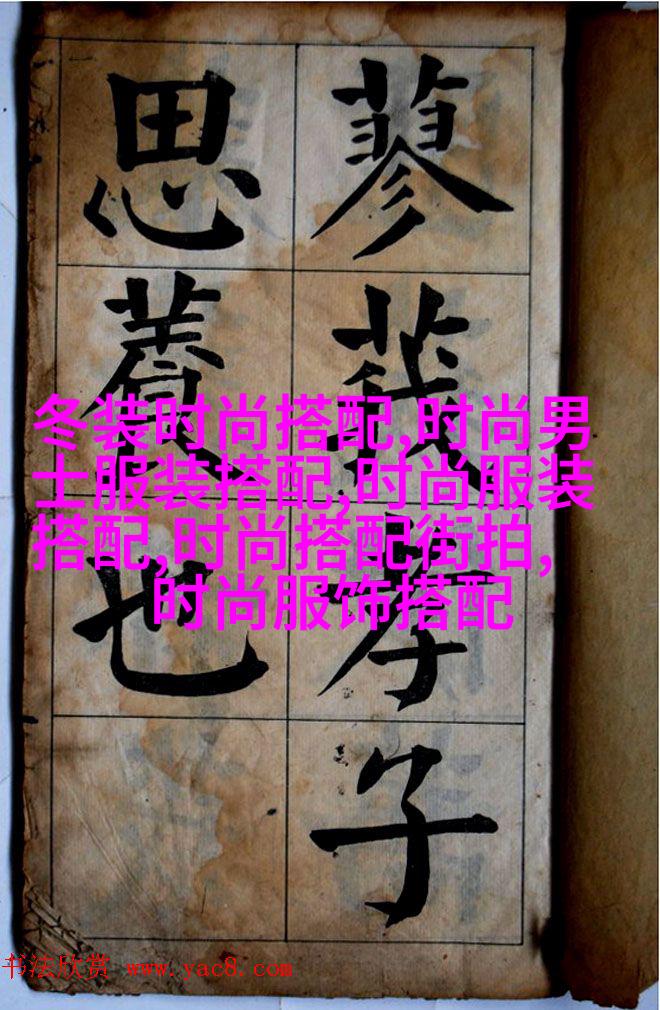 蓼莪孝子
思養也
冬装时尚搭配,时尚男
士服装搭配,时尚服装
搭配,时尚搭配街拍,
时尚服饰搭配
书法欣赏 www.yac8.com